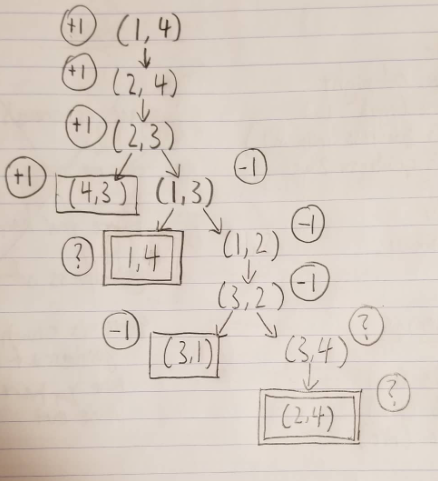 +1 (1,4)
+1 (2,4)
+1 (2,3)
+1 (4,3) (1,3) -1
? 1,4 (1,2) -1
(3,2) -1
-1 (3,1) (3,4) ?
(2,4) ?